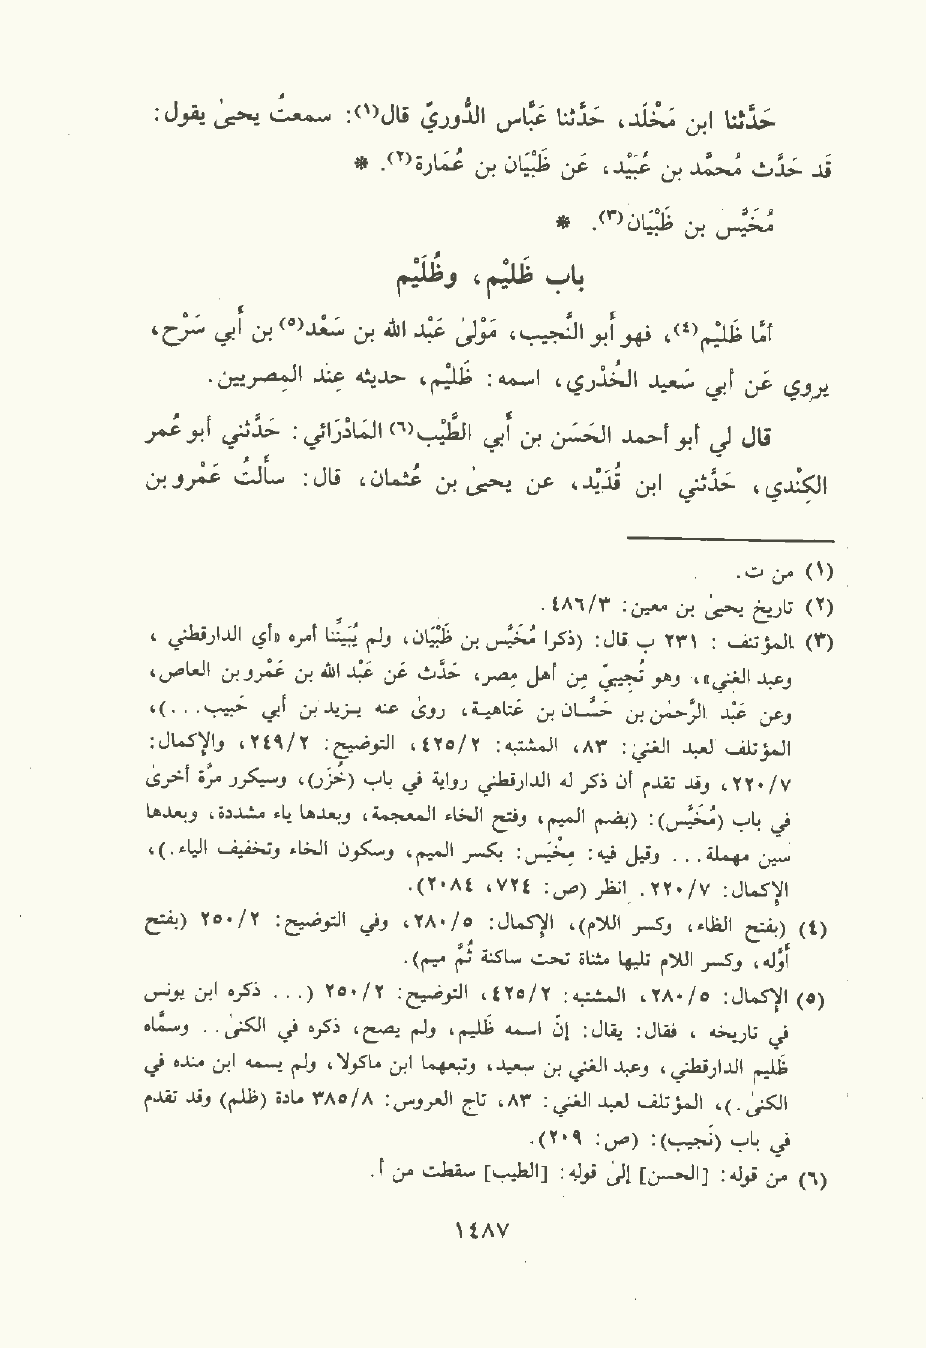 حَدَّثنا ابن مَخْلَد، حَدَّثنا عَبَّاس الدُّوريّ قال(١): سمعتُ يحيىٰ يقول:
قَد حَدَّث مُحمَّد بن عُبَيْد، عَن ظَبْيَان بن عُمَارة(٢). *
مُخَيَّس بن ظَبْيَان(٣). *
باب ظَلِيْم، وظُلَيْم
أمَّا ظَلِيْم(٤)، فهو أبو النَّجيب، مَوْلىٰ عَبْد الله بن سَعْد(٥) بن أبي سَرْح،
يروي عَن أبي سَعيد الخُدْري، اسمه: ظَلِيْم، حديثه عِند المِصريين.
قال لي أبو أحمد الحَسَن بن أبي الطَّيِّب(٦) المَاذَرائي: حَدَّثني أبو عُمر
الكِنْدي، حَدَّثني ابن قُدَيْد، عن يحيىٰ بن عُثمان، قال: سألتُ عَمْرو بن
(١) من ت.
(٢) تاريخ يحيىٰ بن معين: ٤٨٦/٣.
(٣) المؤتنف : ٢٣١ ب قال: (ذكرا مُخَيَّس بن ظَبْيَان، ولم يُبَيِّنا أمره «أي الدارقطني ،
وعبد الغني»، وهو تُجيبيّ مِن أهل مِصر، حَدَّث عَن عَبْد الله بن عَمْرو بن العاص،
وعَن عَبْد الرَّحمٰن بن حَسَّان بن عَتاهية، روىٰ عنه يزيد بن أبي حَبيب...)،
المؤتلف لعبد الغني: ٨٣، المشتبه: ٤٢٥/٢، التوضيح: ٢٤٩/٢، والإكمال:
٢٢٠/٧، وقد تقدم أن ذكر له الدارقطني رواية في باب (خُزَز)، وسيكرر مرّة أخرىٰ
في باب (مُخَيَّس): (بضم الميم، وفتح الخاء المعجمة، وبعدها ياء مشددة، وبعدها
سين مهملة... وقيل فيه: مِخْيَس: بكسر الميم، وسكون الخاء وتخفيف الياء.)،
الإكمال: ٢٢٠/٧. انظر (ص: ٧٢٤، ٢٠٨٤).
(٤) (بفتح الظاء، وكسر اللام)، الإكمال: ٢٨٠/٥، وفي التوضيح: ٢٥٠/٢ (بفتح
أوَّله، وكسر اللام تليها مثناة تحت ساكنة ثُمَّ ميم).
(٥) الإكمال: ٢٨٠/٥، المشتبه: ٤٢٥/٢، التوضيح: ٢٥٠/٢ (... ذكره ابن يونس
في تاريخه ، فقال: يقال: إنَّ اسمه ظَليم، ولم يصح، ذكره في الكنىٰ.. وسمَّاه
ظَليم الدارقطني، وعبد الغني بن سعيد، وتبعهما ابن ماكولا، ولم يسمه ابن منده في
الكنىٰ.)، المؤتلف لعبد الغني: ٨٣، تاج العروس: ٣٨٥/٨ مادة (ظلم) وقد تقدم
في باب (نُجيب): (ص: ٢٠٩).
(٦) من قوله: [الحسن] إلىٰ قوله: [الطيب] سقطت من أ.
١٤٨٧